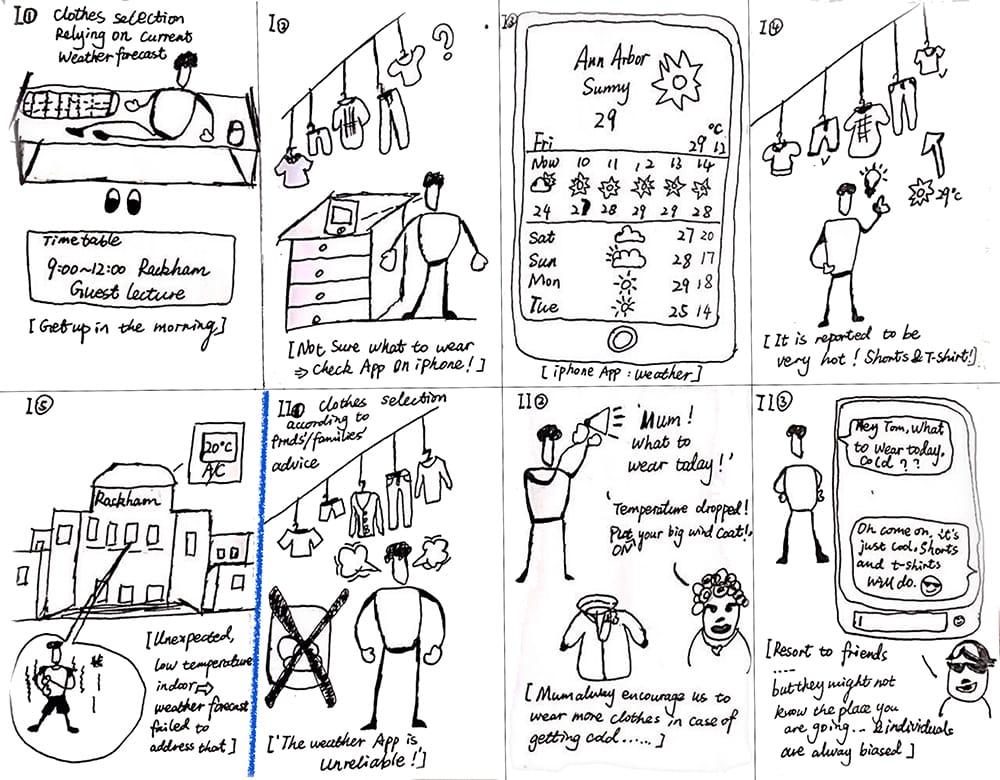 I①
Clothes selection
Relying on Current
Weather forecast
Timetable
9:00~12:00 Rackham
Guest lecture
[Get up in the morning]
I②
?
[Not Sure what to wear
⇒ Check App On iphone!]
I③
Ann Arbor
Sunny
29
°C
Fri 29 13
Now 10 11 12 13 14
24 27 28 29 29 28
Sat 27 20
Sun 28 17
Mon 29 18
Tue 25 14
[iphone App : weather]
I④
29°C
[It is reported to be
very hot! Shorts & T-shirt!]
I⑤
20°C
A/C
Rackham
[Unexpected,
low temperature
indoor ⇨
weather forecast
failed to
address that]
II①
Clothes selection
according to
frnds'/families'
advice
['The weather App is
Unreliable!']
II②
'Mum!
What to
wear today!'
'Temperature dropped!
Put your big wind Coat!'
ON
[Mum alway encourage us to
wear more clothes in case of
getting cold......]
II③
Hey Tom, What
to wear today.
Cold??
Oh come on, it's
just cool, Shorts
and t-shirts
will do.
[Resort to friends
....
but they might not
know the place you
are going... & individuals
are alway biased]